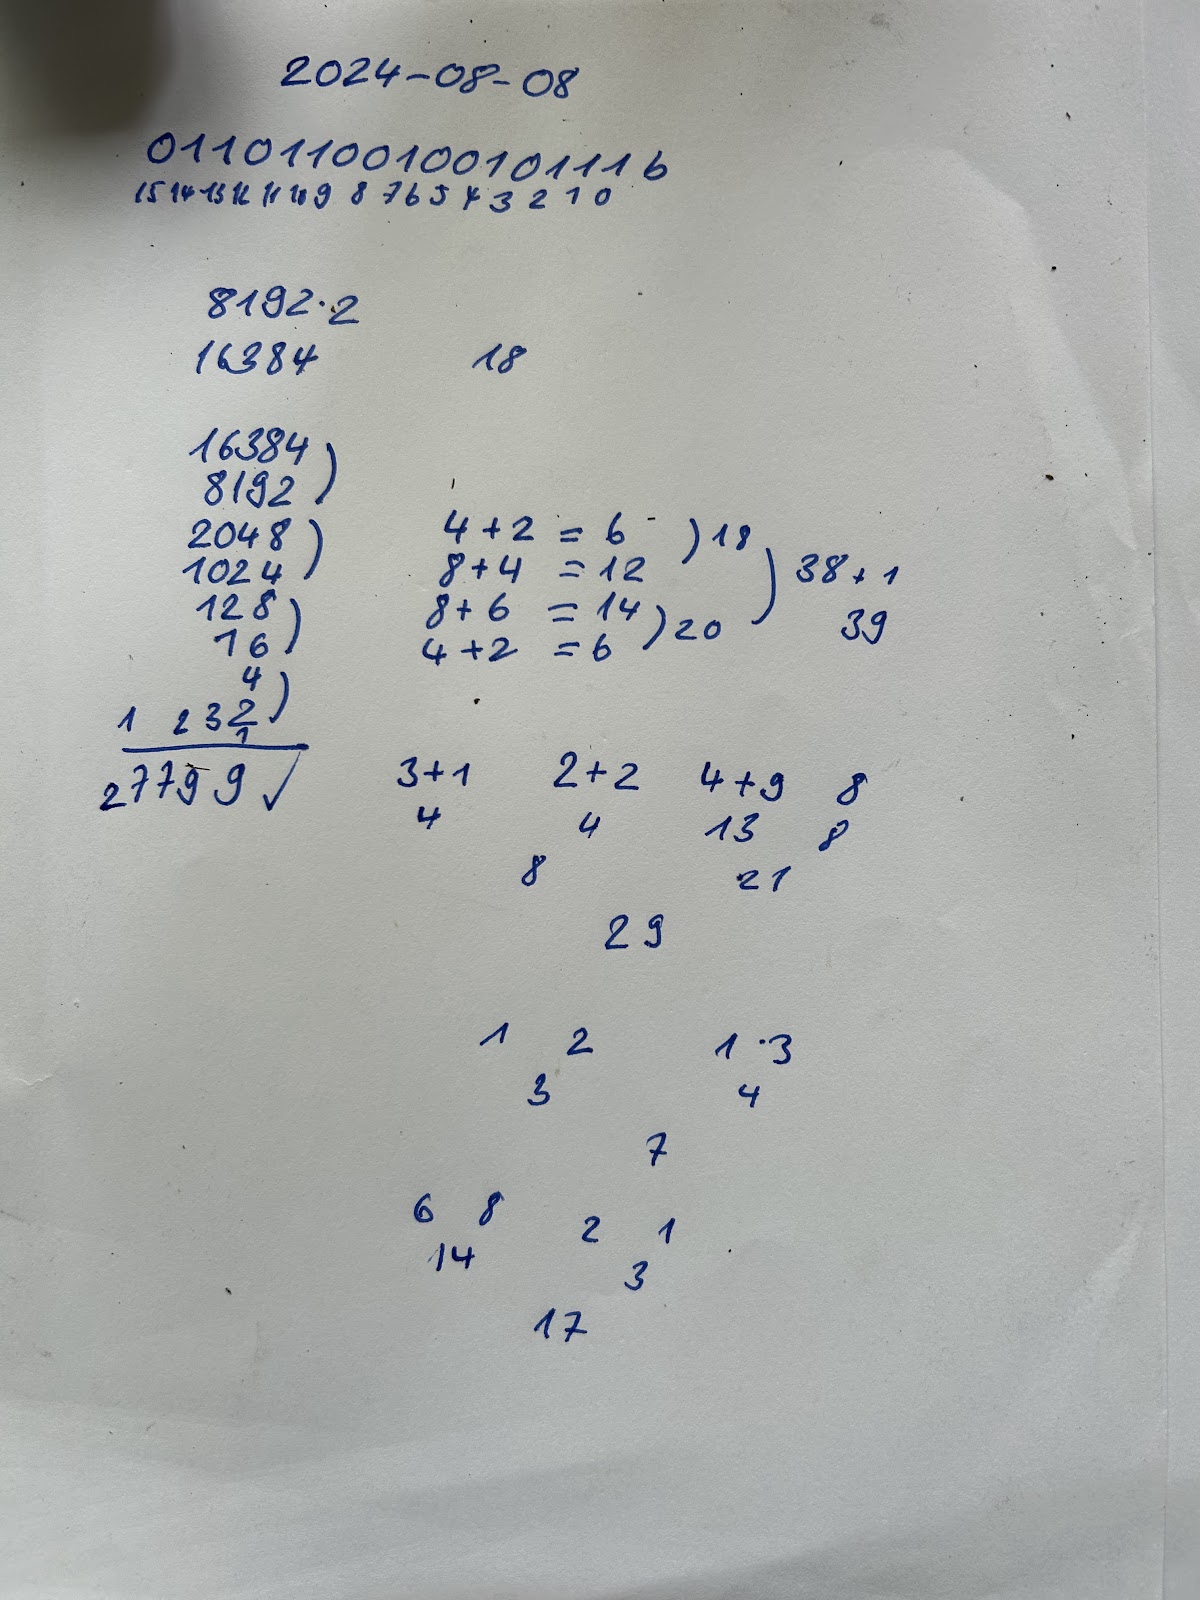 2024-08-08
0110110010010111 b
15 14 13 12 11 10 9 8 7 6 5 4 3 2 1 0
8192·2
16384 18
16384 )
8192 )
2048 ) 4+2 = 6 ) 18
1024 ) 8+4 = 12 ) 38+1
128 ) 8+6 = 14 ) 20 39
16 ) 4+2 = 6
4 )
1 2 3 2 )
1
27799 ✓ 3+1 2+2 4+9 8
4 4 13 8
8 21
29
1 2 1·3
3 4
7
6 8 2 1
14 3
17